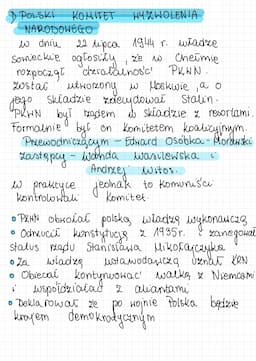 1) POLSKI KOMITET WYZWOLENIA
NARODOWEGO
w dniu 22 lipca 1944 r. władze
sowieckie ogłosiły, że w Chełmie
rozpoczął działalność PKWN.
Został utworzony w Moskwie, a o
jego składzie zdecydował Stalin.
PKWN był rządem w składzie z resortami.
Formalnie był on komitetem koalicyjnym.
Przewodniczącym - Edward Osóbka-Morawski
zastępcy - Wanda Wasilewska i
Andrzej Witos.
w praktyce jednak to komuniści
kontrolowali komitet.
• PKWN obwołał polską władzą wykonawczą
• Odrzucił konstytucję z 1935r. i zanegował
status rządu Stanisława Mikołajczyka
• Za władzę ustawodawczą uznał KRN
• Obiecał kontynuować walkę z Niemcami
i współdziałać z aliantami
• Deklarował że po wojnie Polska będzie
krajem demokratycznym